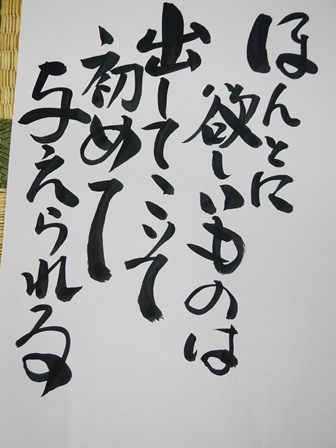 ほんとに
欲しいものは
出してこそ
初めて
与えられる